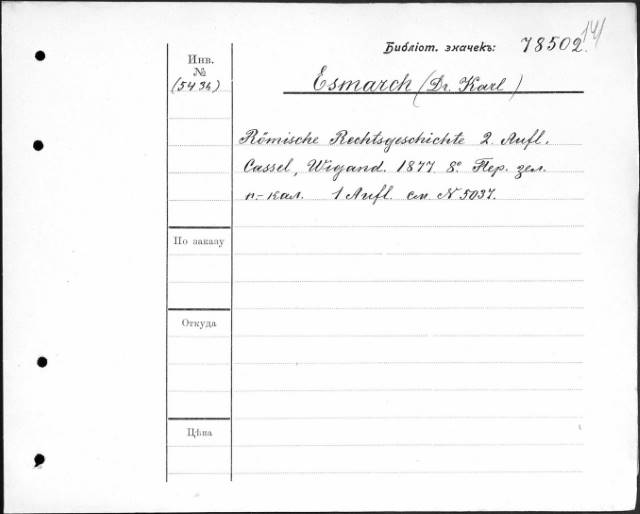 Библіот. значекъ: 78502
Инв.
№
(5434)
Esmarch (Dr. Karl)
Römische Rechtsgeschichte 2. Aufl.
Cassel, Wigand. 1877. 8º. Пер. зел.
п.-кал. 1 Aufl. см. N 5037.
По заказу
Откуда
Цѣна